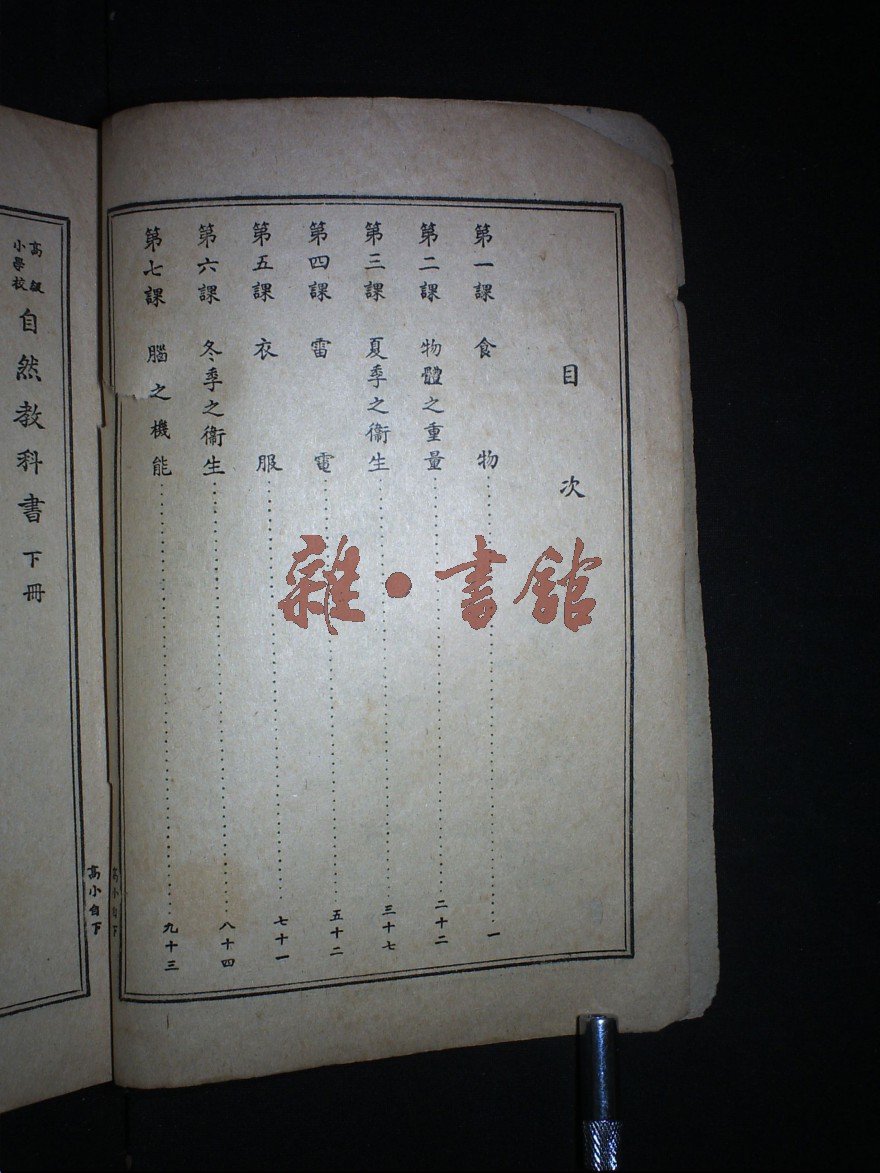 目次
第一課 食物……一
第二課 物體之重量……二十二
第三課 夏季之衞生……三十七
第四課 雷電……五十二
第五課 衣服……七十一
第六課 冬季之衞生……八十四
第七課 腦之機能……九十三
高小自下
高小自下
高級小學校 自然教科書 下冊
雜·書館